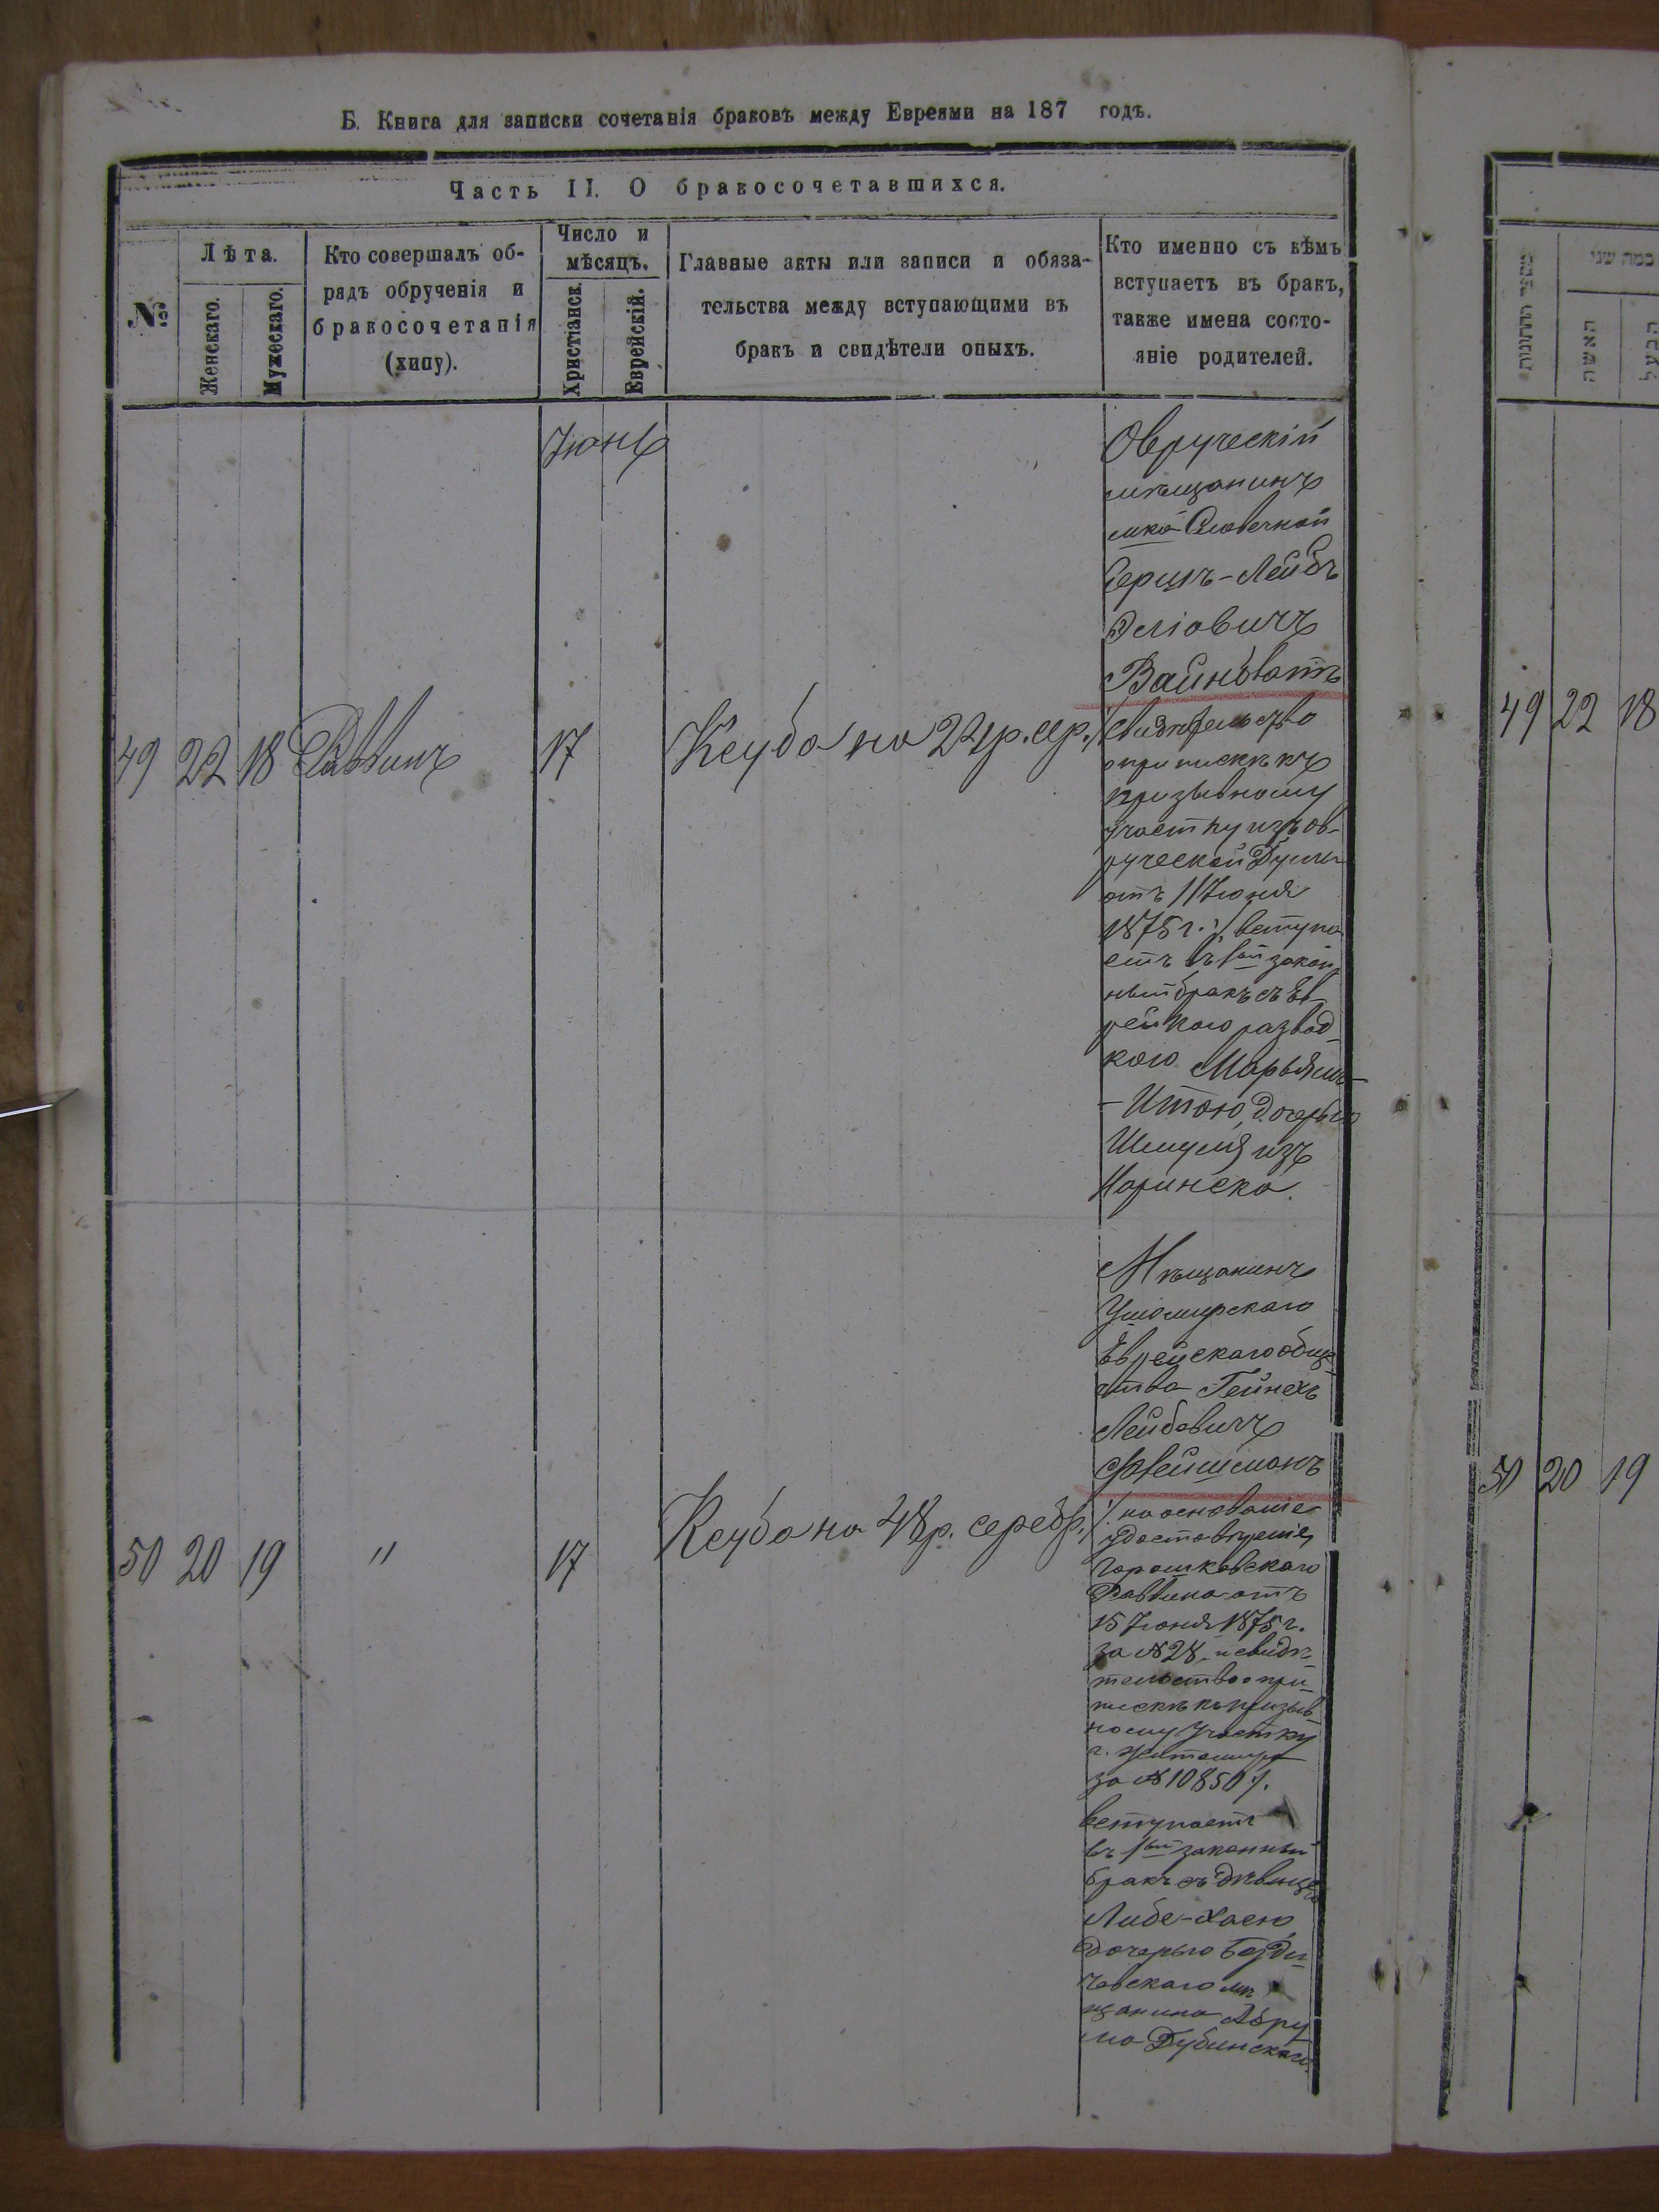 Б. Книга для записки сочетанія браковъ между Евреями на 187 годъ.
Часть II. О бракосочетавшихся.
№
Лѣта.
Женскаго.
Мужескаго.
Кто совершалъ об-
рядъ обрученія и
бракосочетанія
(хипу).
Число и
мѣсяцъ.
Христіанск.
Еврейскій.
Главные акты или записи и обяза-
тельства между вступающими въ
бракъ и свидѣтели оныхъ.
Кто именно съ кѣмъ
вступаетъ въ бракъ,
также имена состо-
яніе родителей.
Іюнь
49 22 18 Раввинъ 17
Ксуба на р. сер.
Овруческій
мѣщанинъ
мка Словечной
Герцъ-Лейбъ
Эліовичъ
Вайнблатъ
/: свидѣтельство
о припискѣ къ
призывному
участку изъ Ов-
руческой Думы
отъ 11 Іюня
1875 г. :/ вступа
етъ въ 1ый закон
ный бракъ съ Ев-
рейкою развод-
кою Марьямъ-
-Итою, дочерью
Шмуля изъ
Норинска.
50 20 19 " 17
Ксуба на 48 р. серебр.
Мѣщанинъ
Ушомирскаго
Еврейскаго общес
ства Гейнехъ
Лейбовичъ
Флейшманъ
/: на основаніе
удостовѣренія
Горошковскаго
Раввина отъ
15 Іюня 1875 г.
за № 28, и свидѣ-
тельство о при-
пискѣ къ призыв
ному участку
г. Житомира
за № 10850 :/.
вступаетъ
въ 1ый законный
бракъ съ дѣвицею
Либе-Хаею
дочерью Берди-
чевскаго мѣ
щанина Абру
ма Дубинскаго.
מספר החתונות
כמה שני
האשה
הבעל
49 22 18
50 20 19